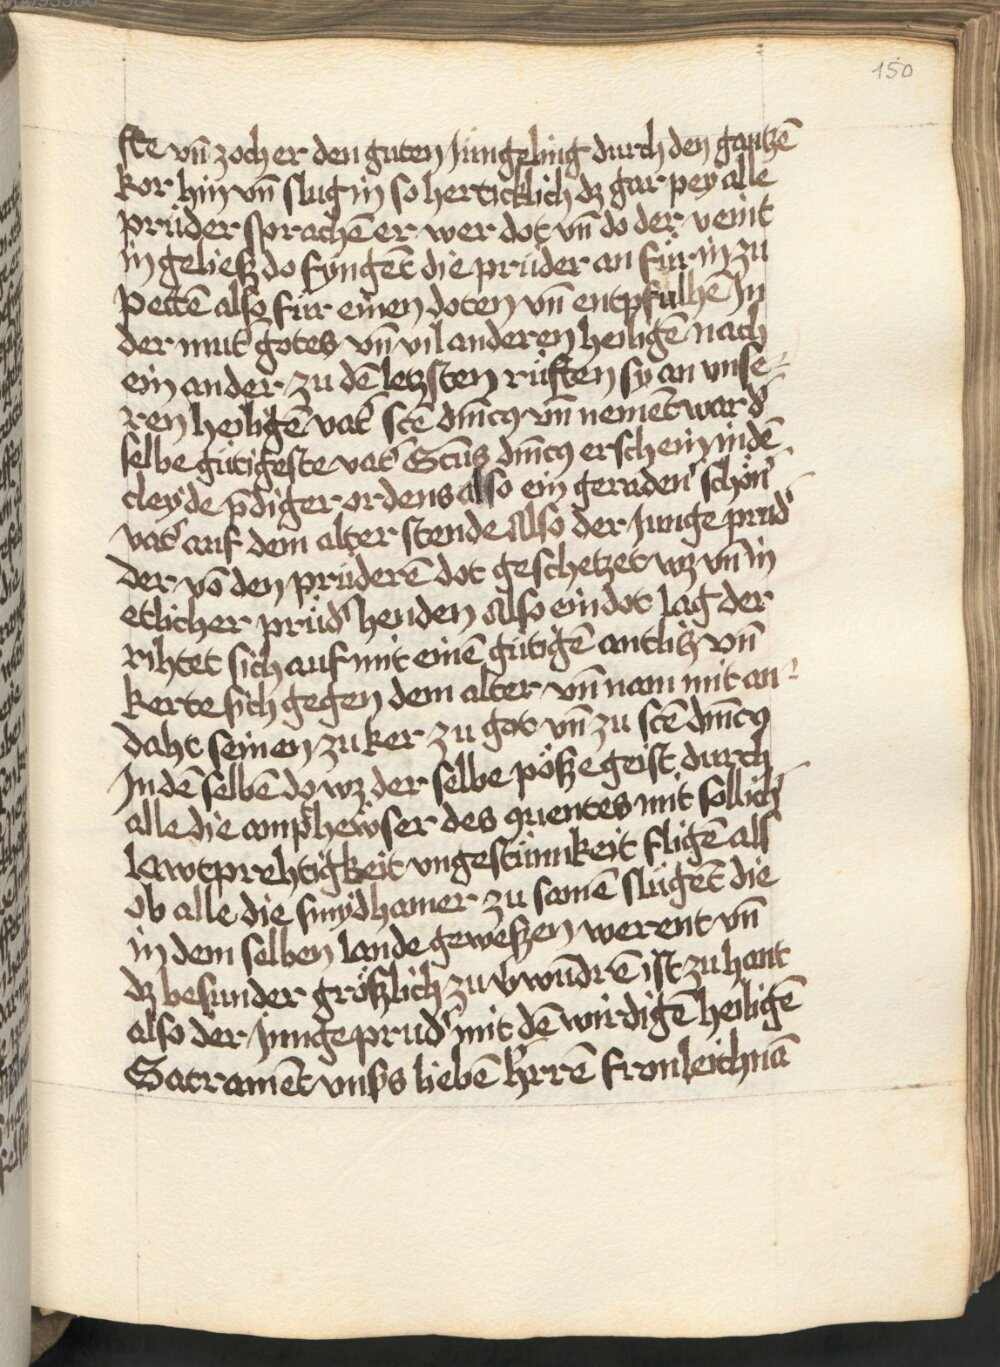 150
ste vn̄ zoch er den guten Jungeling durch den gantzē
kor hin vn̄ slug in so herticklich dz gar pey alle
prüder sprachē er wer dot vn̄ do der veint
in geliesz do fyngēt die prüder an für in zu
pettē also für einen doten vn̄ entpfulhē In
der mut' gotes vn̄ vil anderen heiligē nach
ein ander zu dē letzsten rüften sy an vnse-
ren heiligē vat' scē dm̄cꝯ vn̄ nemēt war d'
selbe gütigeste vat' Sctūs dm̄cꝯ erschein in dē
cleyde p̄diger ordens also ein geraden' schön'
vat' auf dem alter stende Also der Junge prud'
der vō den prüderē dot geschetzet wz vn̄ in
etlicher prüd' henden Also ein dot lag der
rihtet sich auf mit einē gütigē antlitz vn̄
kerte sich gegen dem alter vn̄ nam mit an-
daht seinen zu ker zu got vn̄ zu scē dm̄cꝯ
In dē selbē do wz der selbe pösze geist durch
alle die comp'hewser des ꝯuentes mit sollich'
lawtprehtigkeit vngestümikeit fligē als
ob alle die smydhamer zu samē slügēt die
in dem selben lande geweszen werent vn̄
dz besunder gröszlich zu v'wūdrē ist zu hant
also der Junge prud' mit dē wirdigē heiligē
Sacramēt vnsꝭs liebē h'rrē fronleichnā